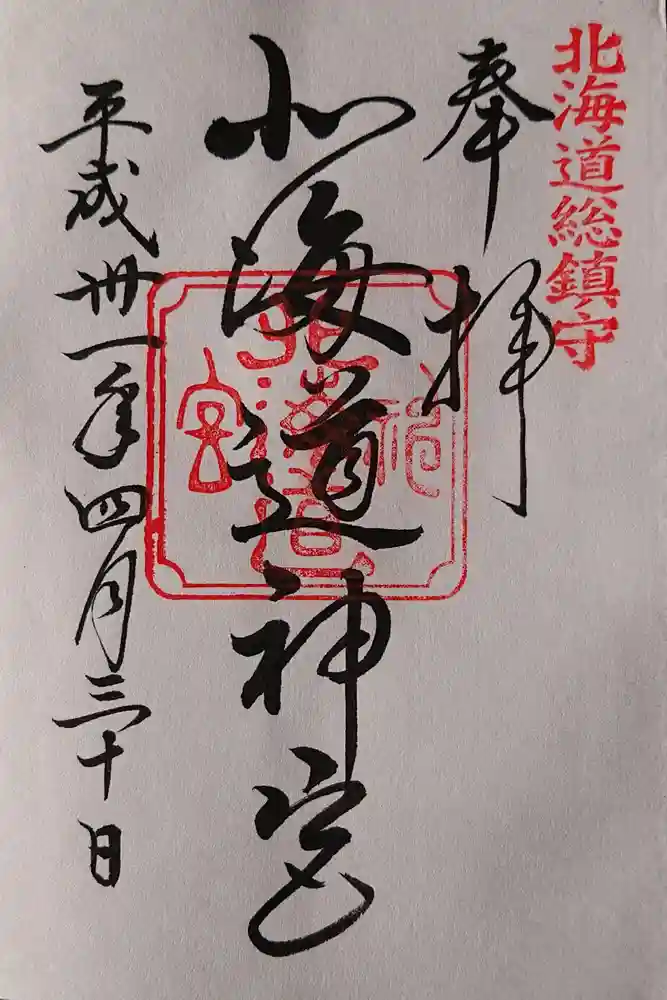 北海道総鎮守
奉拝
北海道神宮
平成卅一年四月三十日
北海道神宮